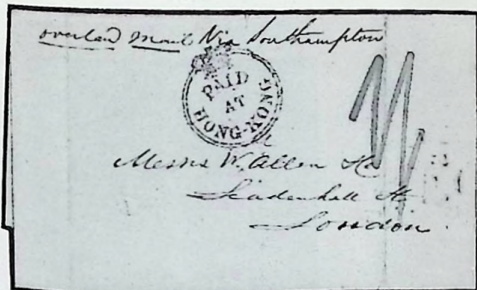 overland Mail Via Southampton
PAID
AT
HONG-KONG
Messrs W. Allen & Co
Leadenhall St
London